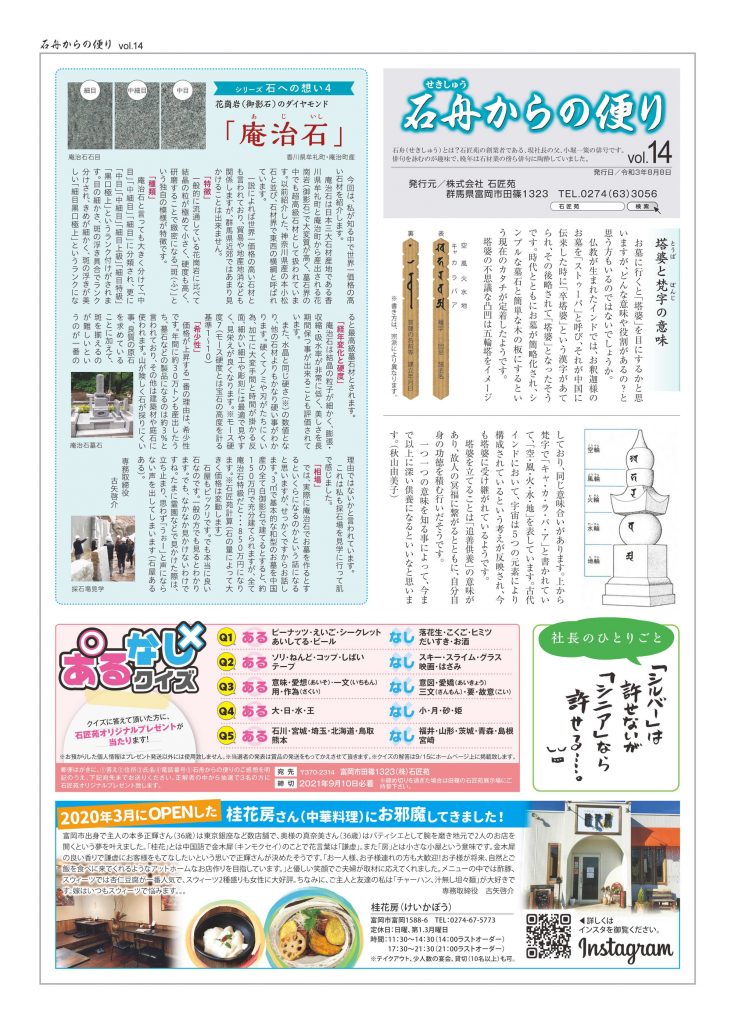 石舟からの便り vol.14
せきしゅう
石舟からの便り
石舟(せきしゅう)とは?石匠苑の創業者である、現社長の父、小堀一築の俳号です。
俳句を詠むのが趣味で、晩年は石材業の傍ら俳句に陶酔していました。
vol.14
発行日/令和3年8月8日
発行元/株式会社 石匠苑
群馬県富岡市田篠1323 TEL.0274(63)3056
石匠苑 検索
とうば ぼんじ
塔婆と梵字の意味
お墓に行くと「塔婆」を目にするかと思
いますが、どんな意味や役割があるの?と
思う方もいるのではないでしょうか。
仏教が生まれたインドでは、お釈迦様の
お墓を「ストゥーパ」と呼び、それが中国に
伝来した時に「卒塔婆」という漢字があて
られ、その後略されて「塔婆」となったそう
です。時代とともにお墓が簡略化され、シ
ンプルな墓石と簡単な木の板にするとい
う現在のカタチが定着したようです。
塔婆の不思議な凸凹は五輪塔をイメージ
空 風 火 水 地
キャ カ ラ バ ア
表
裏
※書き方は、宗派により異なります。
しており、同じ意味合いがあります。上から
梵字で「キャ・カ・ラ・バ・ア」と書かれてい
て、「空・風・火・水・地」を表しています。古代
インドにおいて、宇宙は5つの元素により
構成されているという考えが反映され、今
も塔婆に受け継がれているようです。
塔婆を立てることは「追善供養」の意味が
あり、故人の冥福に繋がるとともに、自分自
身の功徳を積む行いだそうです。
一つ一つの意味を知る事によって、今ま
で以上に深い供養になるといいなと思いま
す。(秋山由美子)
空輪
風輪
火輪
水輪
地輪
シリーズ 石への想い4
花崗岩(御影石)のダイヤモンド
あじいし
「庵治石」
香川県牟礼町・庵治町産
細目
中細目
中目
庵治石石目
今回は、私が知る中で世界一価格の高
い石材を紹介します。
庵治石は日本三大石材産地である香
川県牟礼町と庵治町から産出される花
崗岩(御影石)で大変質が高く、墓石界の
中でも超高級石材として扱われていま
す。以前紹介した、神奈川県産の本小松
石と並び、石材界で東西の横綱と呼ばれ
ています。
一説によれば世界一価格の高い石材と
も言われており、貿易や地産地消なども
関係しますが、群馬県近郊ではあまり見
かけることは出来ません。
「特徴」
一般的に流通している花崗岩に比べて
結晶の粒が極めて小さく、硬度も高く、
研磨することで緻密になる「斑(ふ)」と
いう独自の模様が特徴です。
「種類」
庵治石と言っても大きく分けて「中
目」「中細目」「細目」に分類され、更に
「中目」「中細目」「細目上級」「細目特級」
「黒口極上」というランク付けがされま
す。目の細かさ、斑の浮き具合でランク
分けされ、きめが細かく、斑の浮きが美
しい「細目黒口極上」というランクにな
ると最高級墓石材とされます。
「経年変化と硬度」
庵治石は結晶の粒子が細かく、膨張・
収縮・吸水率が非常に低く、美しさを長
期間保つ事が出来ることも評価されて
います。
また、水晶と同じ硬さ(※)の数値とな
り、他の石材よりもかなり硬い事がわか
ります。硬くてノミや刃がたちにくい
為、加工に大変手間と時間が掛かる反
面、細かい細工や彫刻には最適で見やす
く、見栄えが良くなります。※モース硬
度7(モース硬度とは宝石の高度を計る
基準1〜10)
「希少性」
価格が上昇する一番の理由は、希少性
です。年間に約30万トンも産出したう
ち、墓石などの製品になるのは約3%と
言われており、その他は建築材や庭石に
使われます。山が険しく石が採りにくい
事、良質の原石
を求めている
ことに加えて、
斑を揃えるの
が難しいとい
うのが一番の
庵治石墓石
理由ではないかと言われています。
これは私も採石場を見学に行って肌
で感じました。
「相場」
では、実際に庵治石でお墓を作るとす
るといくらになるのかという話になる
と思いますが、せっかくですからお話し
ます。3㎡で基本的な和型のお墓を中国
産の全て白御影石で建てるとすると、約
150万円で充分建てられますが、全て
庵治石特級だと…1850万円になり
ます。※石匠苑計算(石の量によって大
きく価格は変動します)
石屋もビックリです。でも本当に良い
石なのです。一般の方でも見ると分かり
ます。でも、なかなか見かけないわけで
すね。たまに霊園などで見かけた際は、
立ち止まり、思わず「うぉー!」と声になら
ない声を出してしまいます(石屋ある
ある)。
専務取締役
古矢啓介
採石場見学
ある×なしクイズ
クイズに答えて頂いた方に、
石匠苑オリジナルプレゼントが
当たります!
Q1 ある ピーナッツ・えいご・シークレット あいしてる・ビール なし 落花生・こくご・ヒミツ だいすき・お酒
Q2 ある ソリ・ねんど・コップ・しばい テープ なし スキー・スライム・グラス 映画・はさみ
Q3 ある 意味・愛想(あいそ)・一文(いちもん) 用・作為(さくい) なし 意図・愛嬌(あいきょう) 三文(さんもん)・要・故意(こい)
Q4 ある 大・日・水・王 なし 小・月・砂・姫
Q5 ある 石川・宮城・埼玉・北海道・鳥取 熊本 なし 福井・山形・茨城・青森・島根 宮崎
※お預かりした個人情報はプレゼント発送以外には使用致しません。※当選者の発表は賞品の発送をもってかえさせて頂きます。※クイズの解答は9/15にホームページ上に掲載致します。
郵便はがきに、①答え②住所③氏名④電話番号⑤石舟からの便りのご感想を明
記のうえ、下記宛先までお送りください。正解者の中から抽選で3名の方に
石匠苑オリジナルプレゼント致します。
宛先 〒370-2314 富岡市田篠1323(株)石匠苑
締切 2021年9月10日必着 ※締め切りを過ぎた場合は田篠の石匠苑展示場にご持参下さい。
社長のひとりごと
「シルバー」は
許せないが
「シニア」なら
許せる…。
2020年3月にOPENした 桂花房さん(中華料理)にお邪魔してきました!
富岡市出身で主人の本多正輝さん(36歳)は東京銀座など数店舗で、奥様の真奈美さん(36歳)はパティシエとして腕を磨き地元で2人のお店を
開くという夢を叶えました。「桂花」とは中国語で金木犀(キンモクセイ)のことで花言葉は「謙虚」、また「房」とは小さな小屋という意味です。金木犀
の良い香りで謙虚にお客様をもてなしたいという思いで正輝さんが決めたそうです。「お一人様、お子様連れの方も大歓迎!お子様が将来、自然とご
飯を食べに来てくれるようなアットホームなお店作りを目指しています。」と優しい笑顔でご夫婦が取材に応えてくれました。メニューの中では酢豚、
スウィーツでは杏仁豆腐が一番人気で、スウィーツ2種盛りも女性に大好評。ちなみに、ご主人と友達の私は「チャーハン、汁無し坦々麺」が大好きで
す。嫁はいつもスウィーツで悩みます。。。
専務取締役 古矢啓介
桂花房(けいかぼう)
富岡市富岡1588-6 TEL:0274-67-5773
定休日:日曜、第1.3月曜日
時間:11:30〜14:30(14:00ラストオーダー)
17:30〜21:30(21:00ラストオーダー)
※テイクアウト、少人数の宴会、貸切(10名以上)も可。
桂花房
◀詳しくは
インスタを御覧ください。
Instagram